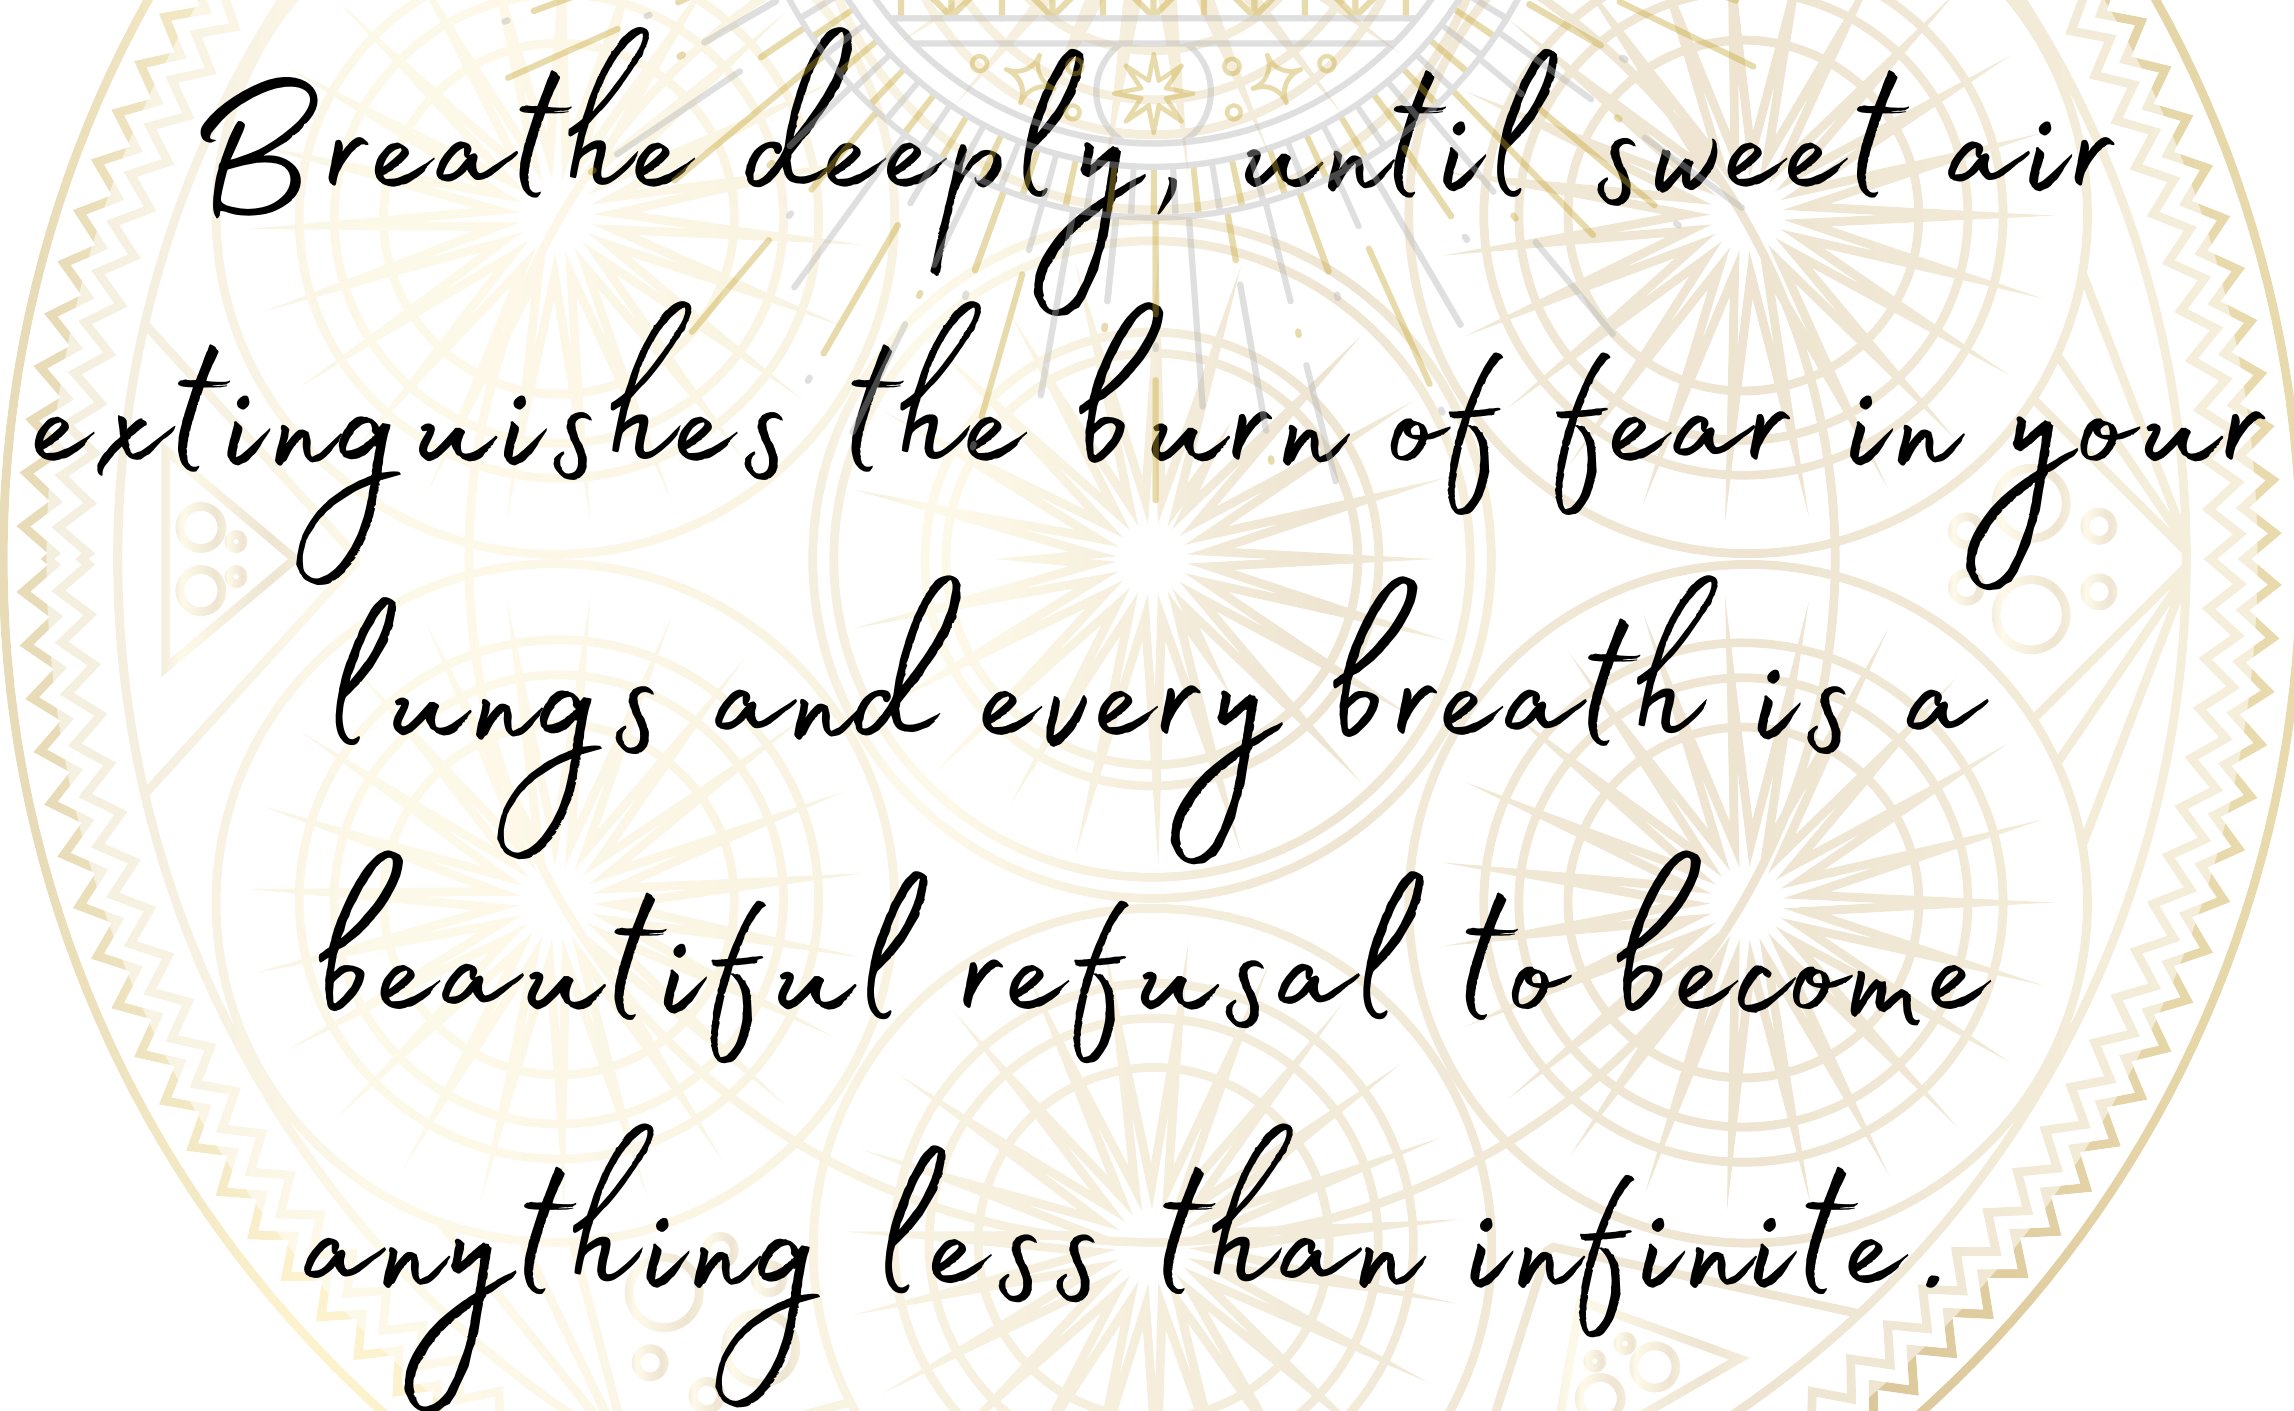 Breathe deeply, until sweet air
extinguishes the burn of fear in your
lungs and every breath is a
beautiful refusal to become
anything less than infinite.